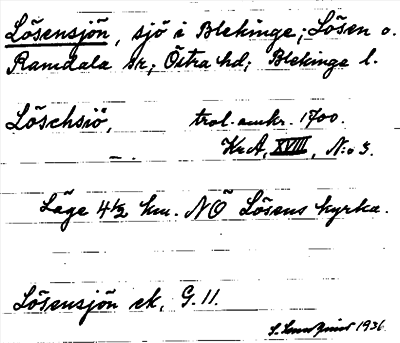 Lösensjön, sjö i Blekinge; Lösen o.
Ramdala sr; Östra hd; Blekinge l.
Löschsiö, trol. omkr. 1700.
KrA, XVIII, N:o 3.
Läge 4 1/2 km. NÖ Lösens kyrka.
Lösensjön ek. G. 11.
1936